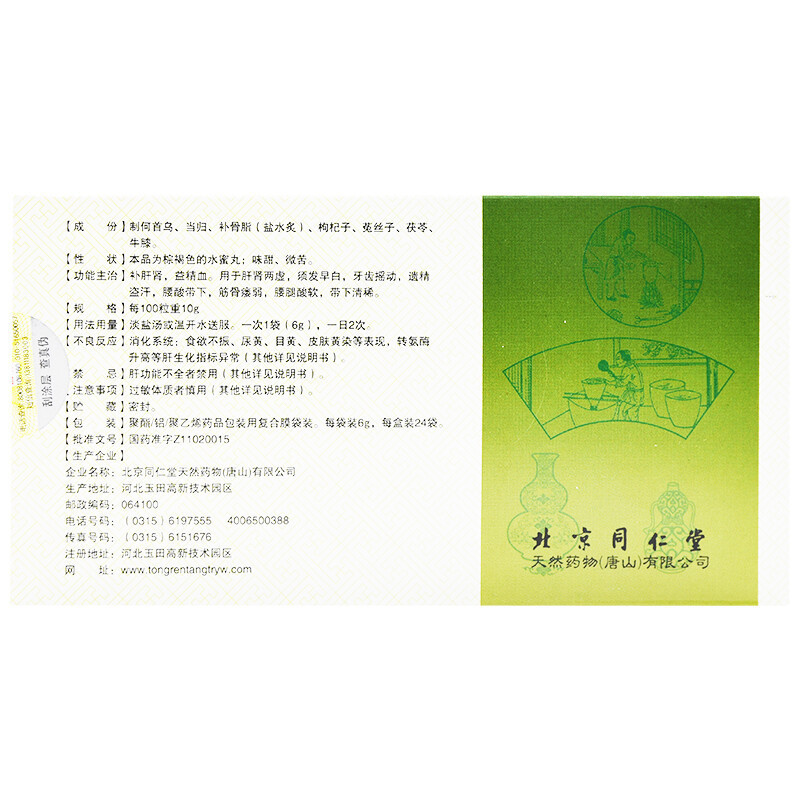 【成　份】制何首乌、当归、补骨脂(盐水炙)、枸杞子、菟丝子、茯苓、
牛膝。
【性　状】本品为棕褐色的水蜜丸；味甜、微苦。
【功能主治】补肝肾，益精血。用于肝肾两虚，须发早白，牙齿摇动，遗精
盗汗，腰酸带下，筋骨痿弱，腰腿酸软，带下清稀。
【规　格】每100粒重10g
【用法用量】淡盐汤或温开水送服。一次1袋(6g)，一日2次。
【不良反应】消化系统：食欲不振、尿黄、目黄、皮肤黄染等表现，转氨酶
升高等肝生化指标异常(其他详见说明书)。
【禁　忌】肝功能不全者禁用(其他详见说明书)。
【注意事项】过敏体质者慎用(其他详见说明书)。
【贮　藏】密封。
【包　装】聚酯/铝/聚乙烯药品包装用复合膜袋装。每袋装6g，每盒装24袋。
【批准文号】国药准字Z11020015
【生产企业】
企业名称：北京同仁堂天然药物(唐山)有限公司
生产地址：河北玉田高新技术园区
邮政编码：064100
电话号码：(0315)6197555　4006500388
传真号码：(0315)6151676
注册地址：河北玉田高新技术园区
网　址：www.tongrentangtryw.com
刮涂层 查真伪
北京同仁堂
天然药物(唐山)有限公司